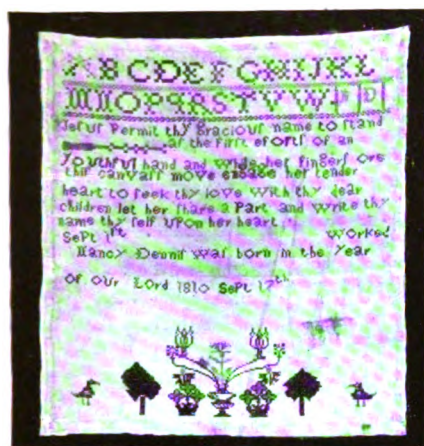 ABCDEFGHIJKL
MNOPQRSTVW
Jesus Permit thy Gracious name to stand
as the First efforts of an
Youthful hand and while her fingers ore
this canvass move engage her tender
heart to seek thy love With thy dear
children let her share a Part and Write thy
name thy self UPon her heart
SePt 1st Worked
Nancy Dennis was born in the Year
of our Lord 1810 SePt 17th